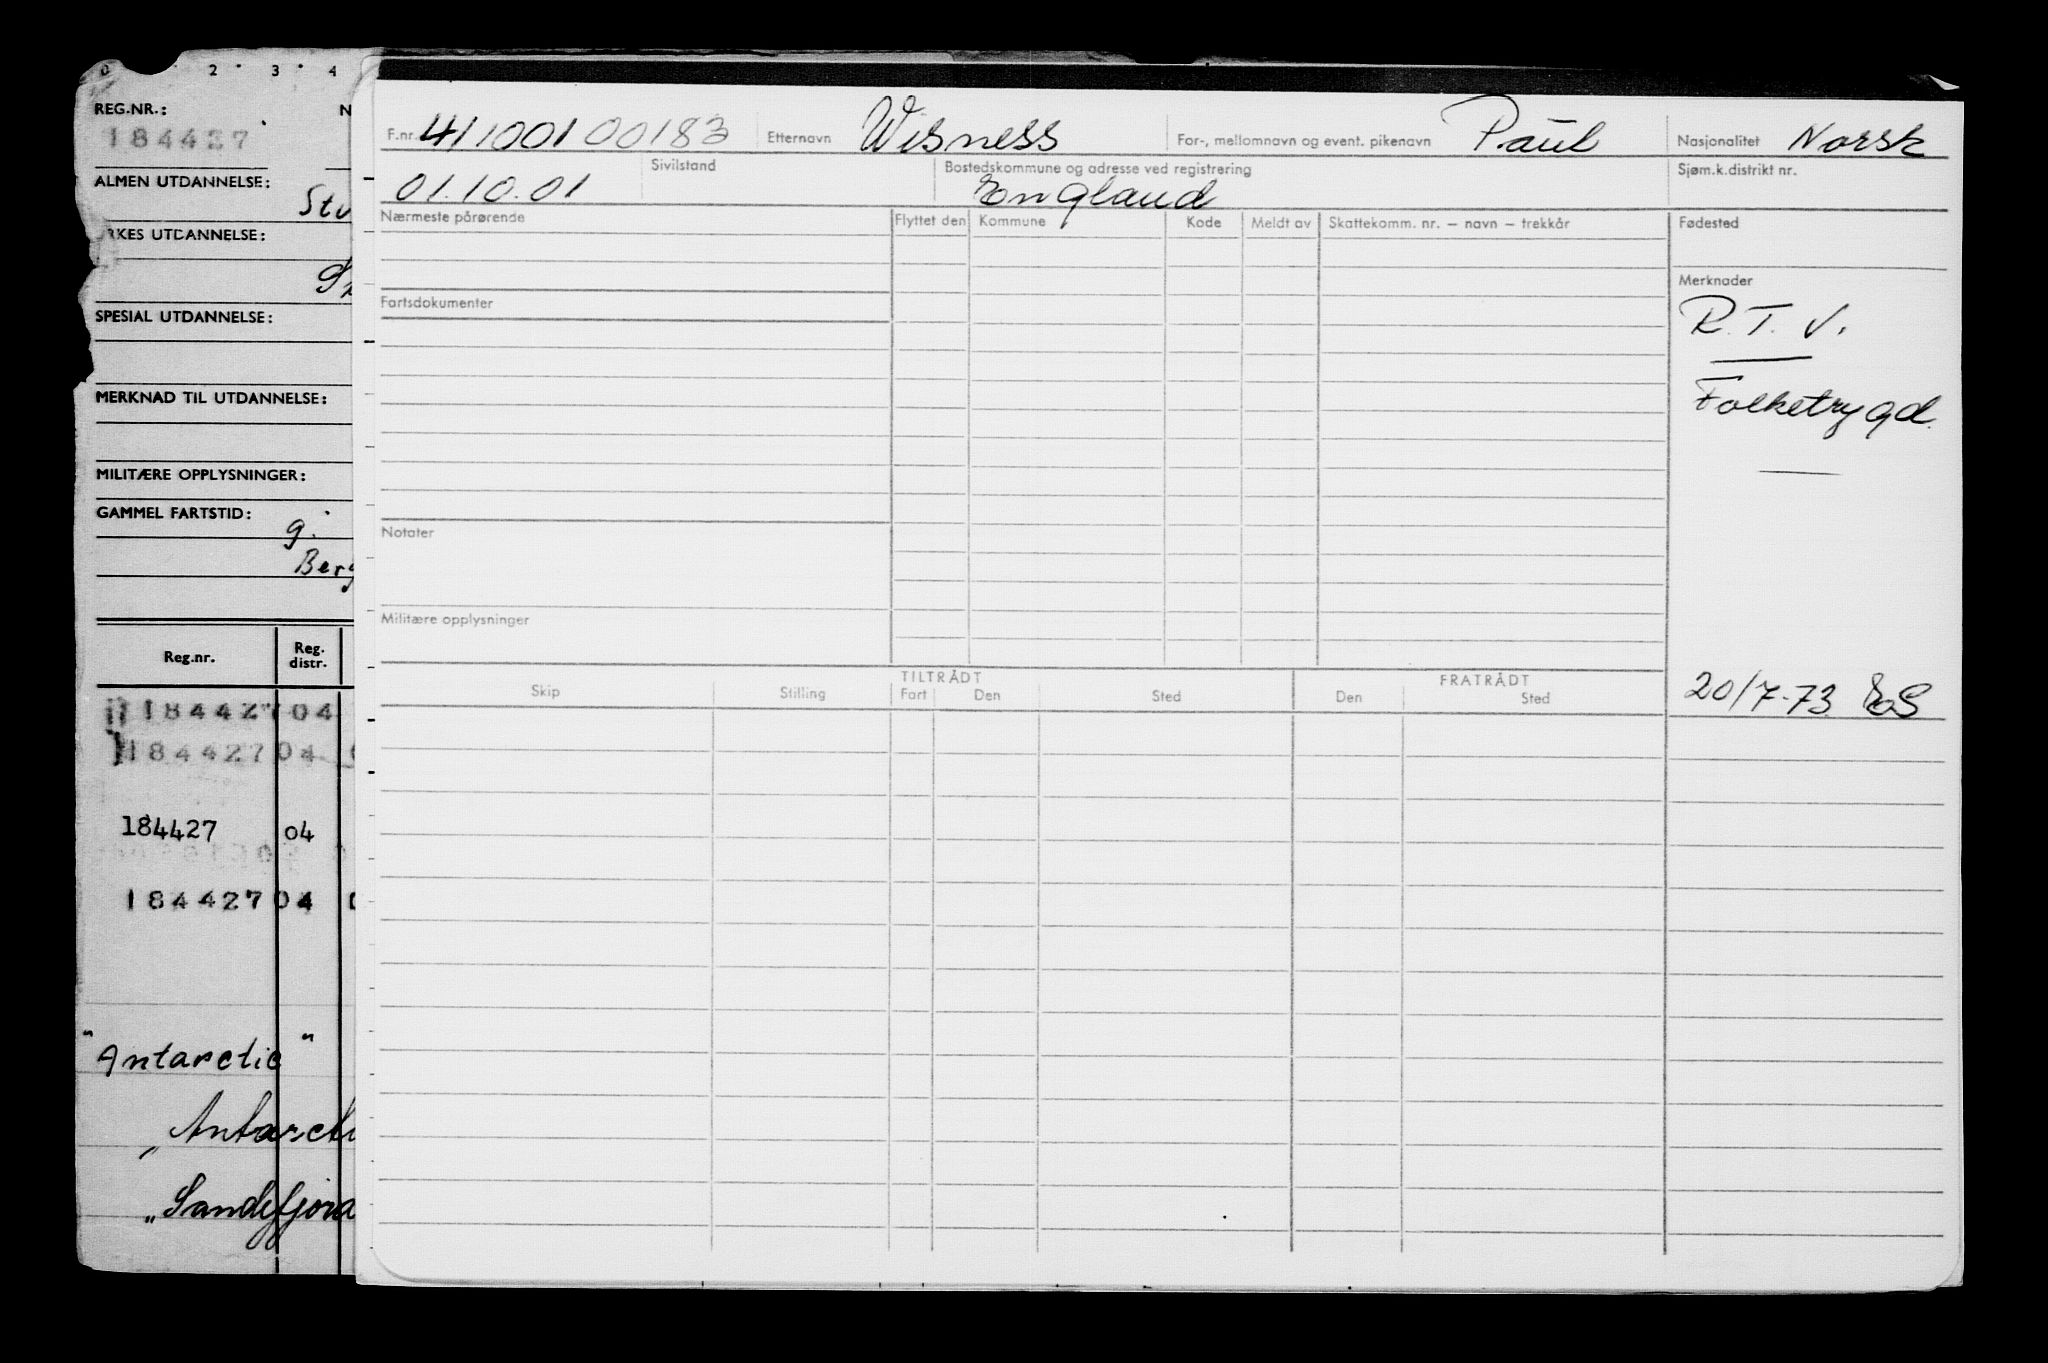 0 2 3 4
REG.NR.: N
184427
ALMEN UTDANNELSE:
YRKES UTDANNELSE:
SPESIAL UTDANNELSE:
MERKNAD TIL UTDANNELSE:
MILITÆRE OPPLYSNINGER:
GAMMEL FARTSTID: g.
Berg
Reg.nr. Reg. distr.
184427 04
184427 04
184427 04
184427 04
"Antarctic"
„Antarcti
„Sandefjord
F.nr. 41100100183 Etternavn Wisness For-, mellomnavn og event. pikenavn Paul Nasjonalitet Norsk
01.10.01 Sivilstand Bostedskommune og adresse ved registrering England Sjøm.k.distrikt nr.
Nærmeste pårørende Flyttet den Kommune Kode Meldt av Skattekomm. nr. – navn – trekkår Fødested
Merknader
Fartsdokumenter
R.T.V.
Folketrygd.
Notater
Militære opplysninger
TILTRÅDT FRATRÅDT
Skip Stilling Fart Den Sted Den Sted
20/7-73